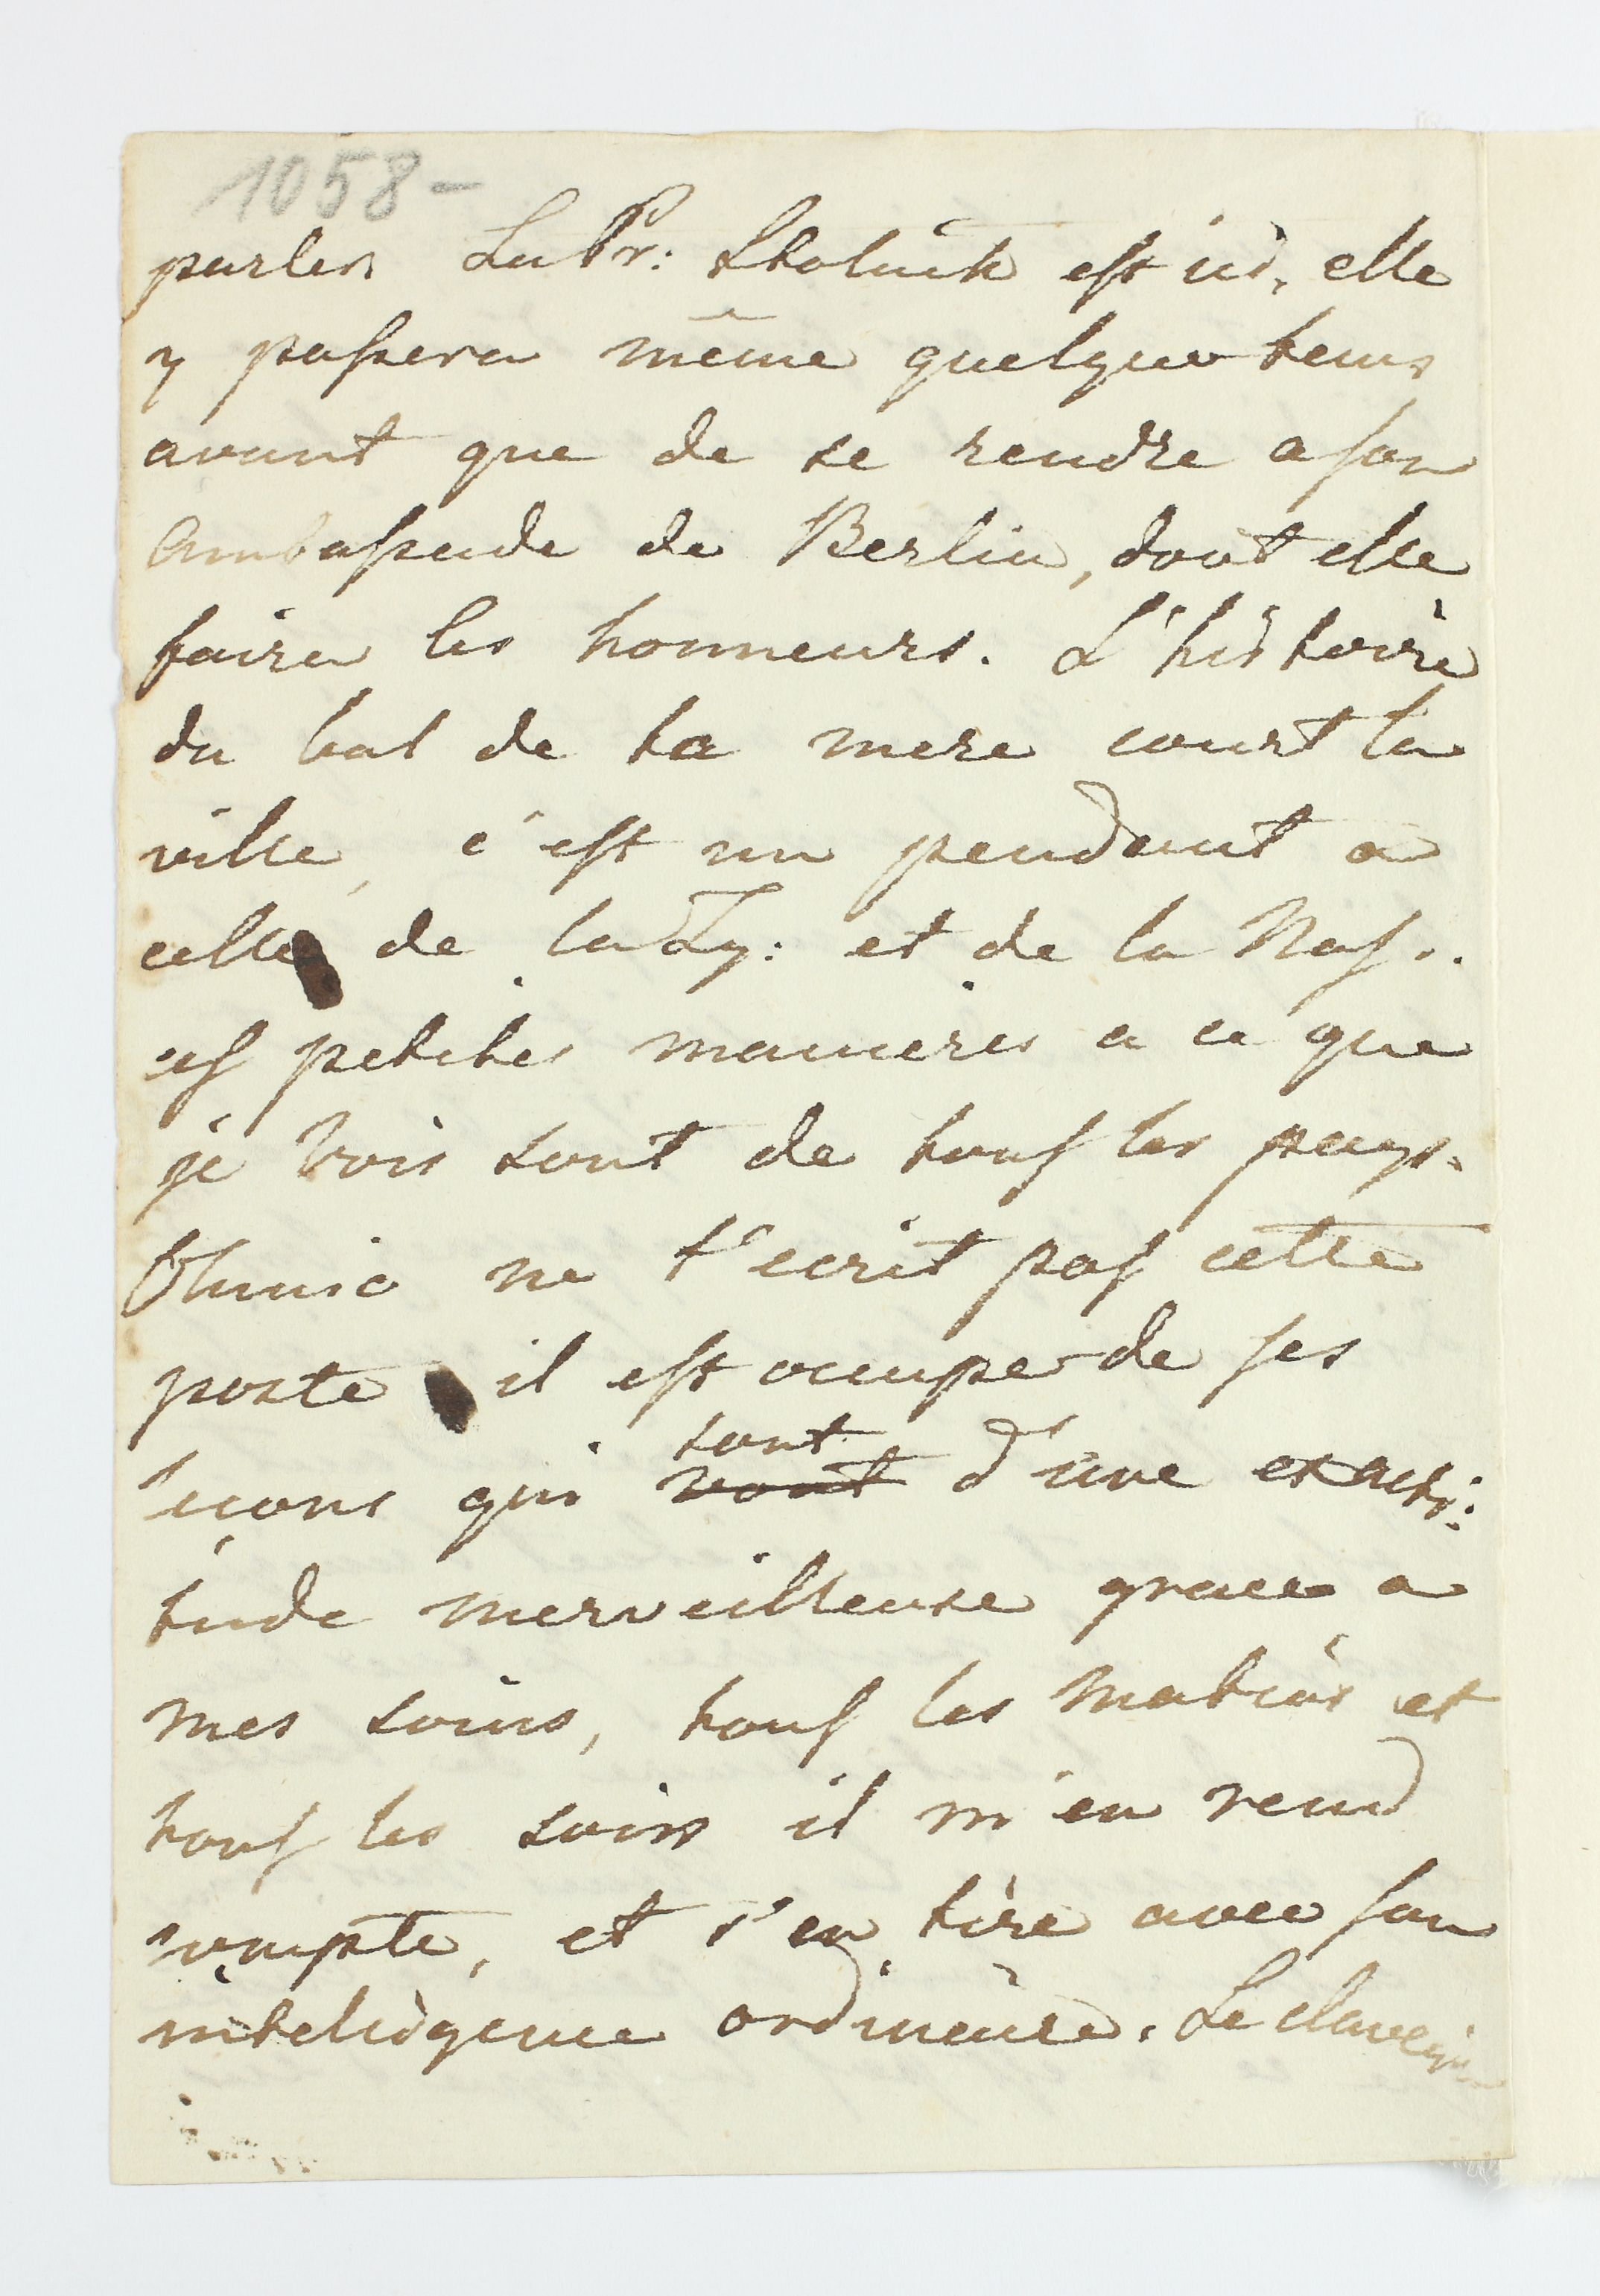 1058-
parler La Pr: est ici, elle
y passera même quelque tems
avant que de se rendre a son
Ambassade de Berlin, dont elle
faira les honneurs. L'histoire
du bal de ta mere court la
ville, c'est un pendant a
celle de la Zy: et de la Nas..
ces petites manieres a ce que
je vois sont de tous les pays.
ne t'ecrit pas cette
poste il est occupe de ses
leçons qui vont sont d'une exacti:
tude merveilleuse grace a
mes soins, tous les matins et
tous les soirs il m'en rend
compte, et s'en tire avec son
inteligence ordineire. Le clavecin